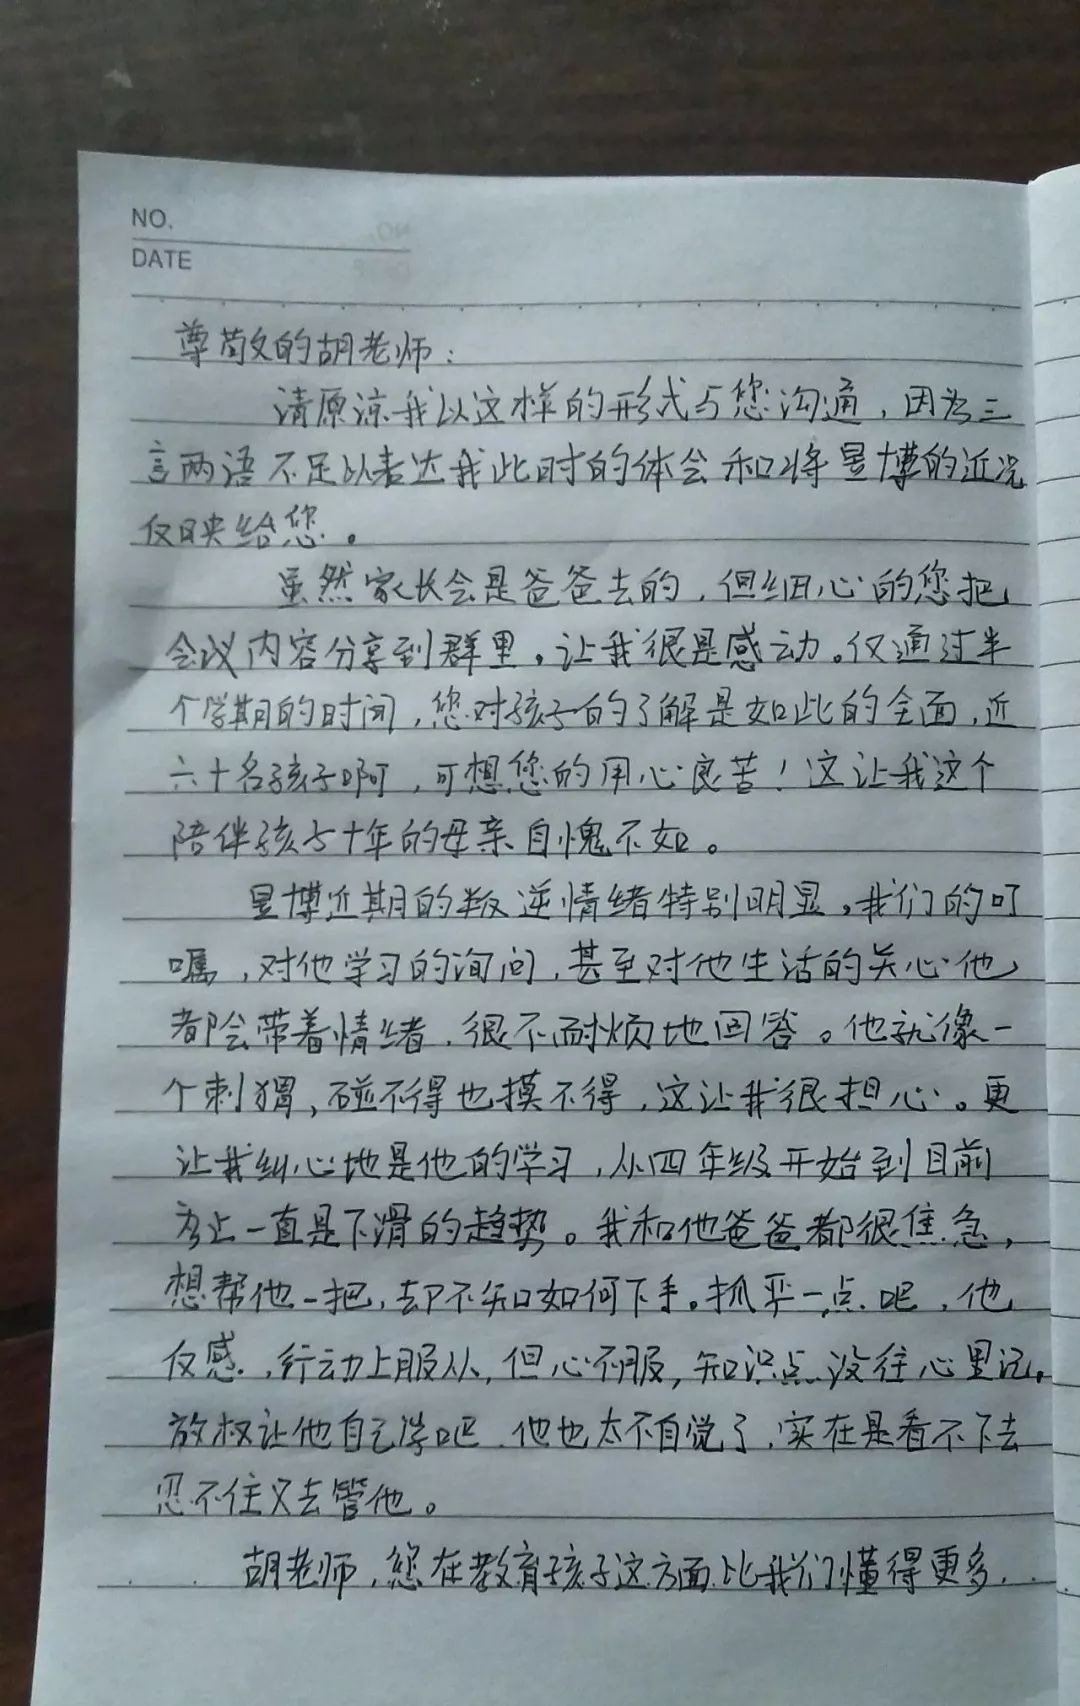 NO.
DATE
尊敬的胡老师：
请原谅我以这样的形式与您沟通，因为三
言两语不足以表达我此时的体会和将昱博的近况
反映给您。
虽然家长会是爸爸去的，但细心的您把
会议内容分享到群里，让我很是感动。仅通过半
个学期的时间，您对孩子的了解是如此的全面，近
六十名孩子啊，可想您的用心良苦！这让我这个
陪伴孩子十年的母亲自愧不如。
昱博近期的叛逆情绪特别明显，我们的叮
嘱，对他学习的询问，甚至对他生活的关心他
都会带着情绪，很不耐烦地回答。他就像一
个刺猬，碰不得也摸不得，这让我很担心。更
让我纠心地是他的学习，从四年级开始到目前
为止一直是下滑的趋势。我和他爸爸都很焦急，
想帮他一把，却不知如何下手。抓严一点吧，他
反感，行动上服从，但心不服，知识点没往心里记，
放权让他自己学吧，他也太不自觉了，实在是看不下去
忍不住又去管他。
胡老师，您在教育孩子这方面比我们懂得更多，